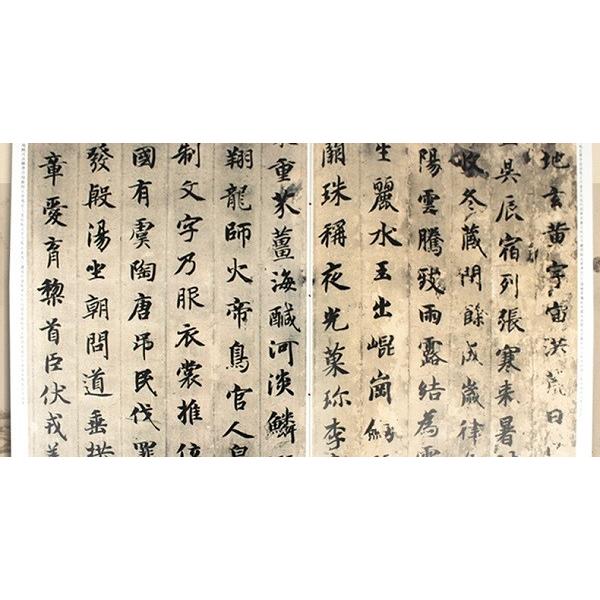 地玄黄宇宙洪荒日
昃辰宿列張寒来暑
收冬藏閏餘成歲律
陽雲騰致雨露結為
生麗水玉出崐崗
闕珠稱夜光菓珍李
重芥薑海鹹河淡鱗
翔龍師火帝鳥官人皇
制文字乃服衣裳推位
國有虞陶唐弔民伐罪
發殷湯坐朝問道垂拱
章愛育黎首臣伏戎